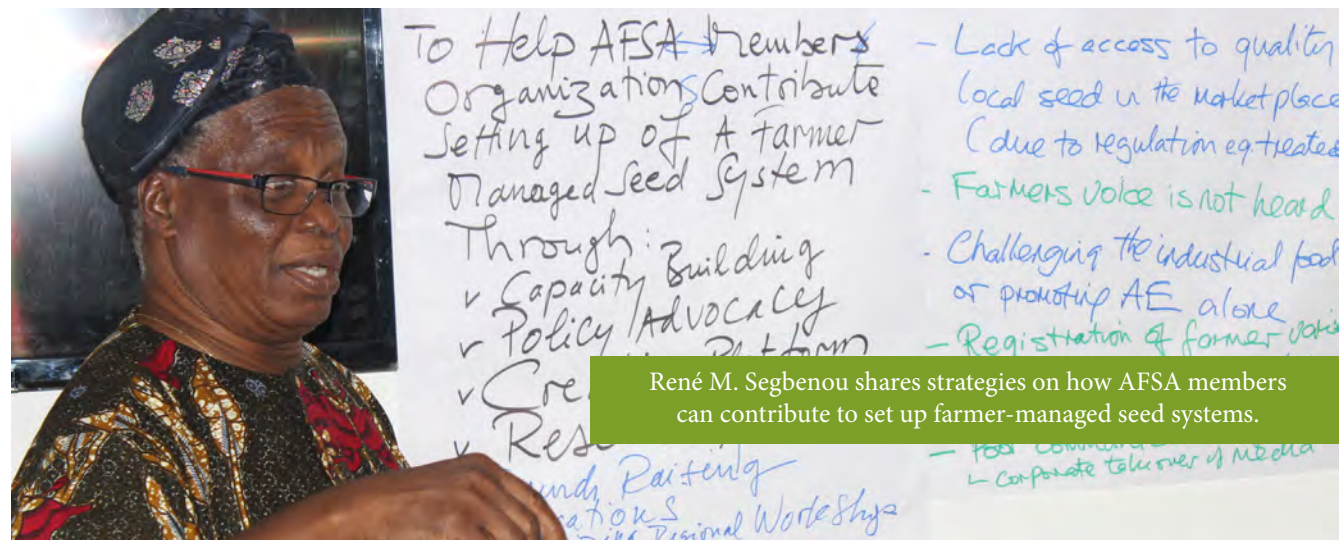 To Help AFSA Members
Organizations Contribute
Setting up of A Farmer
Managed Seed System
Through:
v Capacity Building
v Policy / Advocacy
v Platform
v
Raising
Regional Workshops
- Lack of access to quality
local seed in the market place
(due to regulation eg. treated
- Farmers voice is not heard
- Challenging the industrial food
or promoting AE alone
- Registration of farmer
- Poor
Corporate takeover of media
René M. Segbenou shares strategies on how AFSA members
can contribute to set up farmer-managed seed systems.